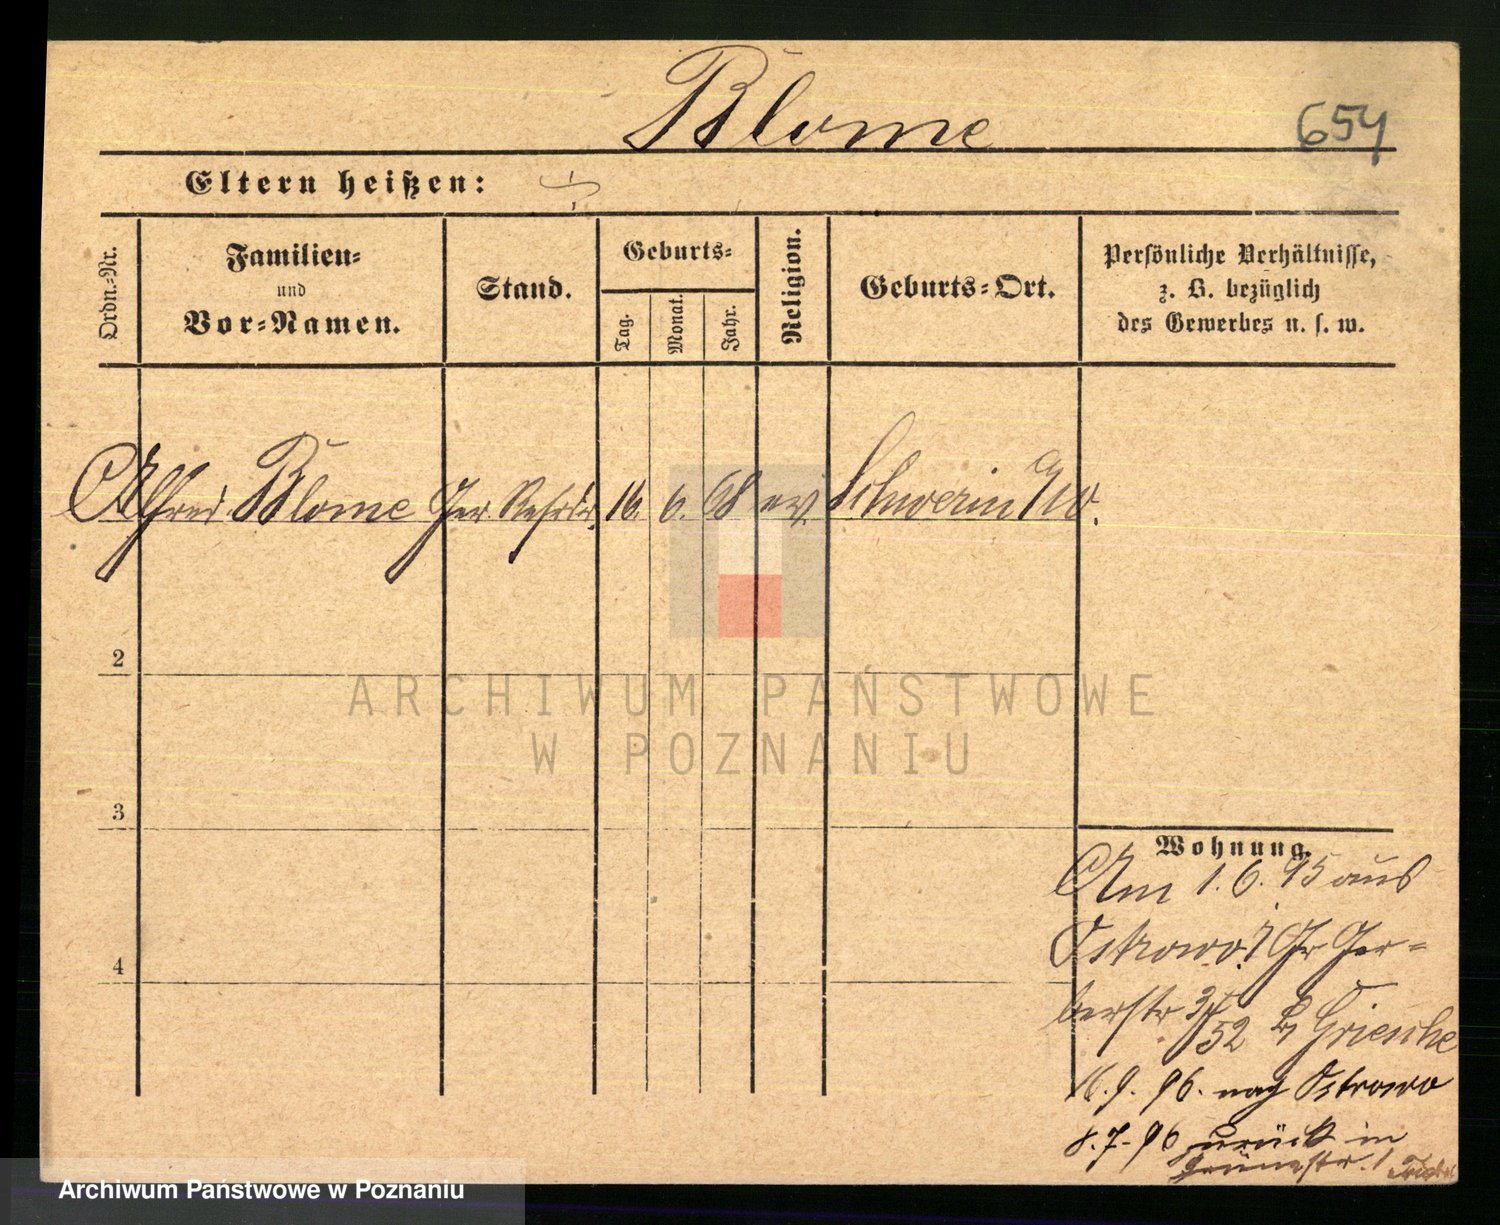 Blome
654
Eltern heißen:
Ordn.-Nr.
Familien-
und
Vor-Namen.
Stand.
Geburts-
Tag.
Monat.
Jahr.
Religion.
Geburts-Ort.
Persönliche Verhältnisse,
z. B. bezüglich
des Gewerbes u. s. w.
Alfred Blome Ger. Refrdr. 16. 6. 68 ev. Schwerin a/W.
2
ARCHIWUM PAŃSTWOWE
W POZNANIU
3
Wohnung.
Am 1. 6. 95 aus
Ostrowo Gr Ger-
4
berstr 52 b Griesche
16. 9. 96. nach Ostrowo
8. 7. 96 zurück in
Archiwum Państwowe w Poznaniu